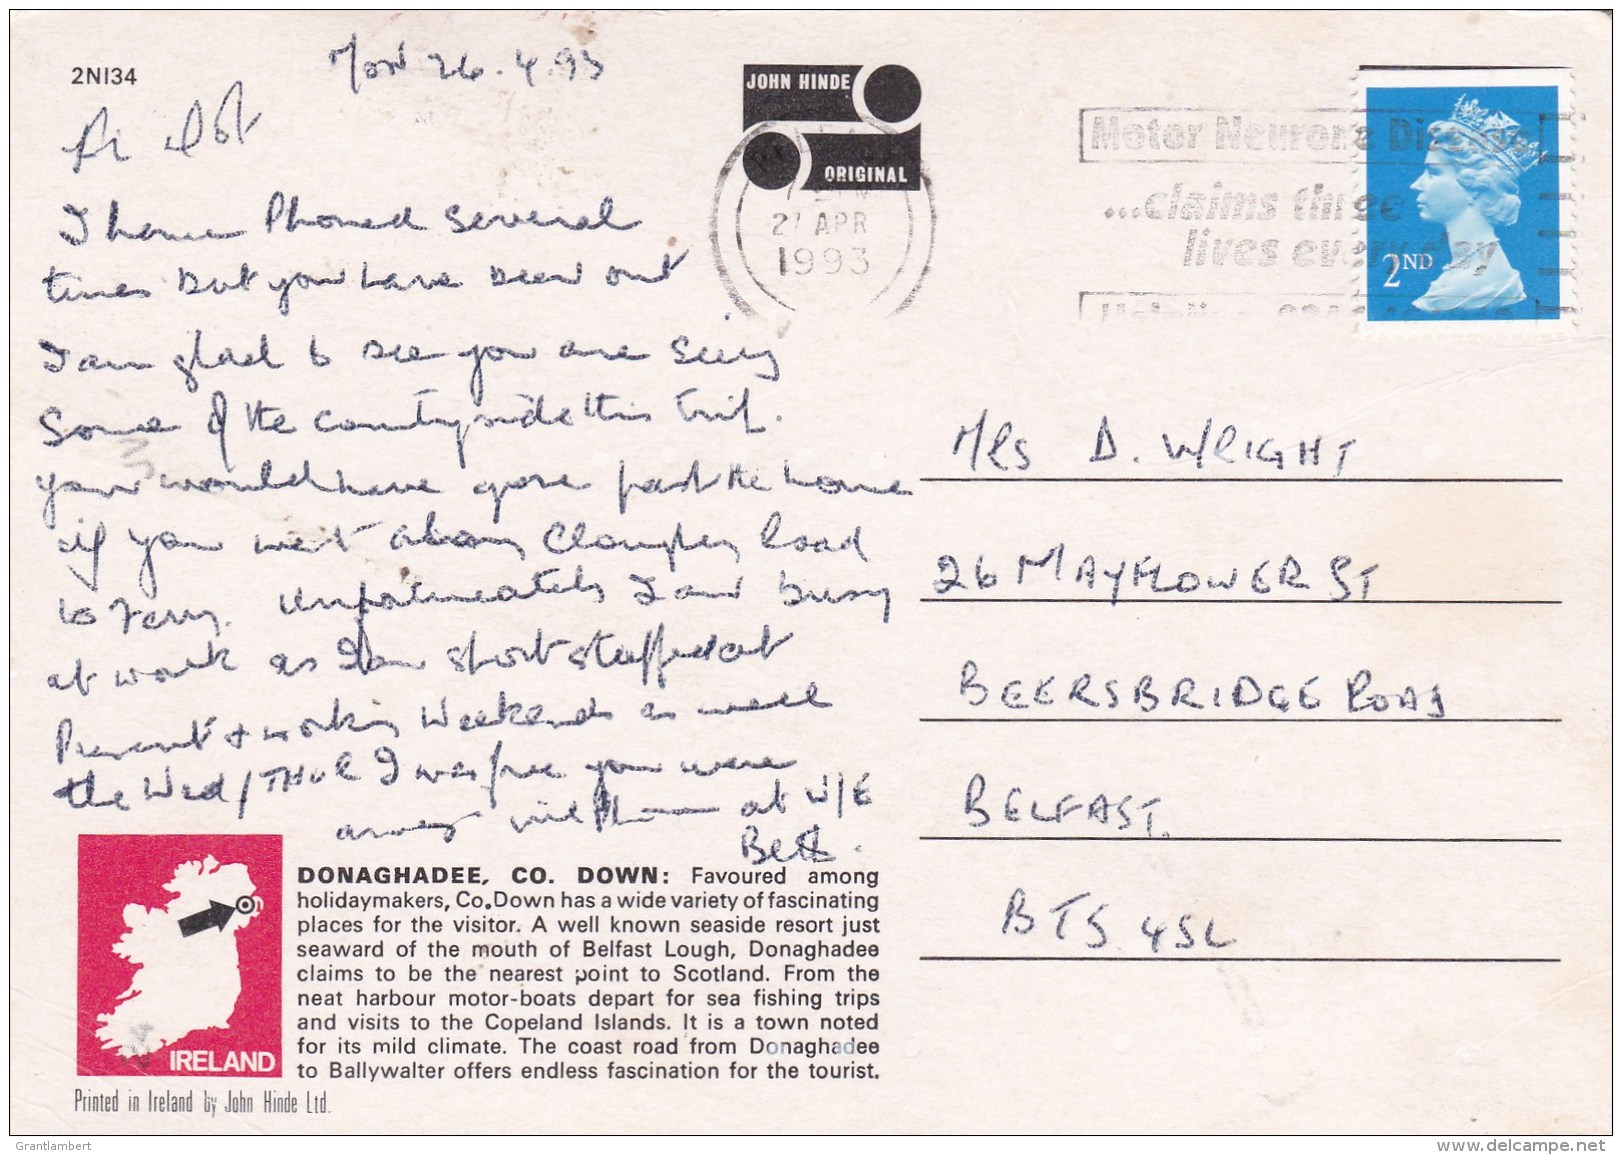 2NI34
Mon 26.4.93
Dot
I have Phoned several
times but you have been out
I am glad to see you are seeing
some of the countryside this trip.
you would have gone past the home
if you went along Cloughey Road
to Ferry. Unfortunately I am busy
at work as I am short staffed at
Present + working Weekends as well
the Wed/THUR I was free you were
away will Phone at W/E
Beth.
JOHN HINDE
ORIGINAL
27 APR
1993
Motor Neurone Disease
...claims three
lives every day
Helpline
2ND
Mrs D. WRIGHT
26 MAYFLOWER ST
BEERSBRIDGE ROAD
BELFAST.
BT5 4SL
DONAGHADEE, CO. DOWN: Favoured among
holidaymakers, Co. Down has a wide variety of fascinating
places for the visitor. A well known seaside resort just
seaward of the mouth of Belfast Lough, Donaghadee
claims to be the nearest point to Scotland. From the
neat harbour motor-boats depart for sea fishing trips
and visits to the Copeland Islands. It is a town noted
for its mild climate. The coast road from Donaghadee
to Ballywalter offers endless fascination for the tourist.
IRELAND
Printed in Ireland by John Hinde Ltd.
Grantlambert
www.delcampe.net